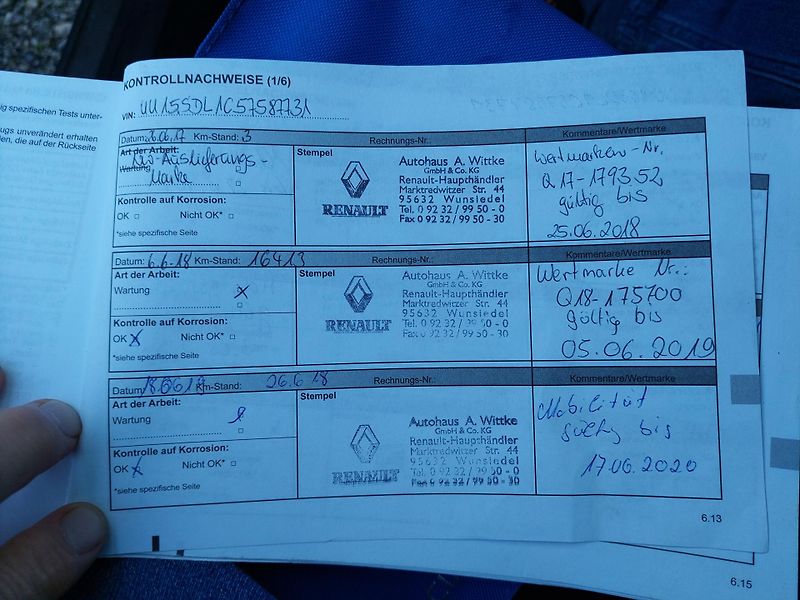 ig spezifischen Tests unter-
ugs unverändert erhalten
den, die auf der Rückseite
KONTROLLNACHWEISE (1/6)
VIN: UU15SDL1C57587731
Datum: 26.06.17 Km-Stand: 3 Rechnungs-Nr.: Kommentare/Wertmarke
Art der Arbeit:
Neu-Auslieferungs-
Wartung
Marke
Kontrolle auf Korrosion:
OK □ Nicht OK* □
*siehe spezifische Seite
Stempel
RENAULT
Autohaus A. Wittke
GmbH & Co. KG
Renault-Haupthändler
Marktredwitzer Str. 44
95632 Wunsiedel
Tel. 0 92 32 / 99 50 - 0
Fax 0 92 32 / 99 50 - 30
Wertmarken-Nr.
Q17-179352
gültig bis
25.06.2018
Datum: 6.6.18 Km-Stand: 16413 Rechnungs-Nr.: Kommentare/Wertmarke
Art der Arbeit:
Wartung
Kontrolle auf Korrosion:
OK Nicht OK* □
*siehe spezifische Seite
Stempel
RENAULT
Autohaus A. Wittke
GmbH & Co. KG
Renault-Haupthändler
Marktredwitzer Str. 44
95632 Wunsiedel
Tel. 0 92 32 / 99 50 - 0
Fax 0 92 32 / 99 50 - 30
Wertmarke Nr.:
Q18-175700
gültig bis
05.06.2019
Datum: Km-Stand: 26.6.18 Rechnungs-Nr.: Kommentare/Wertmarke
Art der Arbeit:
Wartung
Kontrolle auf Korrosion:
OK Nicht OK* □
*siehe spezifische Seite
Stempel
RENAULT
Autohaus A. Wittke
GmbH & Co. KG
Renault-Haupthändler
Marktredwitzer Str. 44
95632 Wunsiedel
Tel. 0 92 32 / 99 50 - 0
Fax 0 92 32 / 99 50 - 30
Mobilität
gültig bis
17.06.2020
6.13
6.15